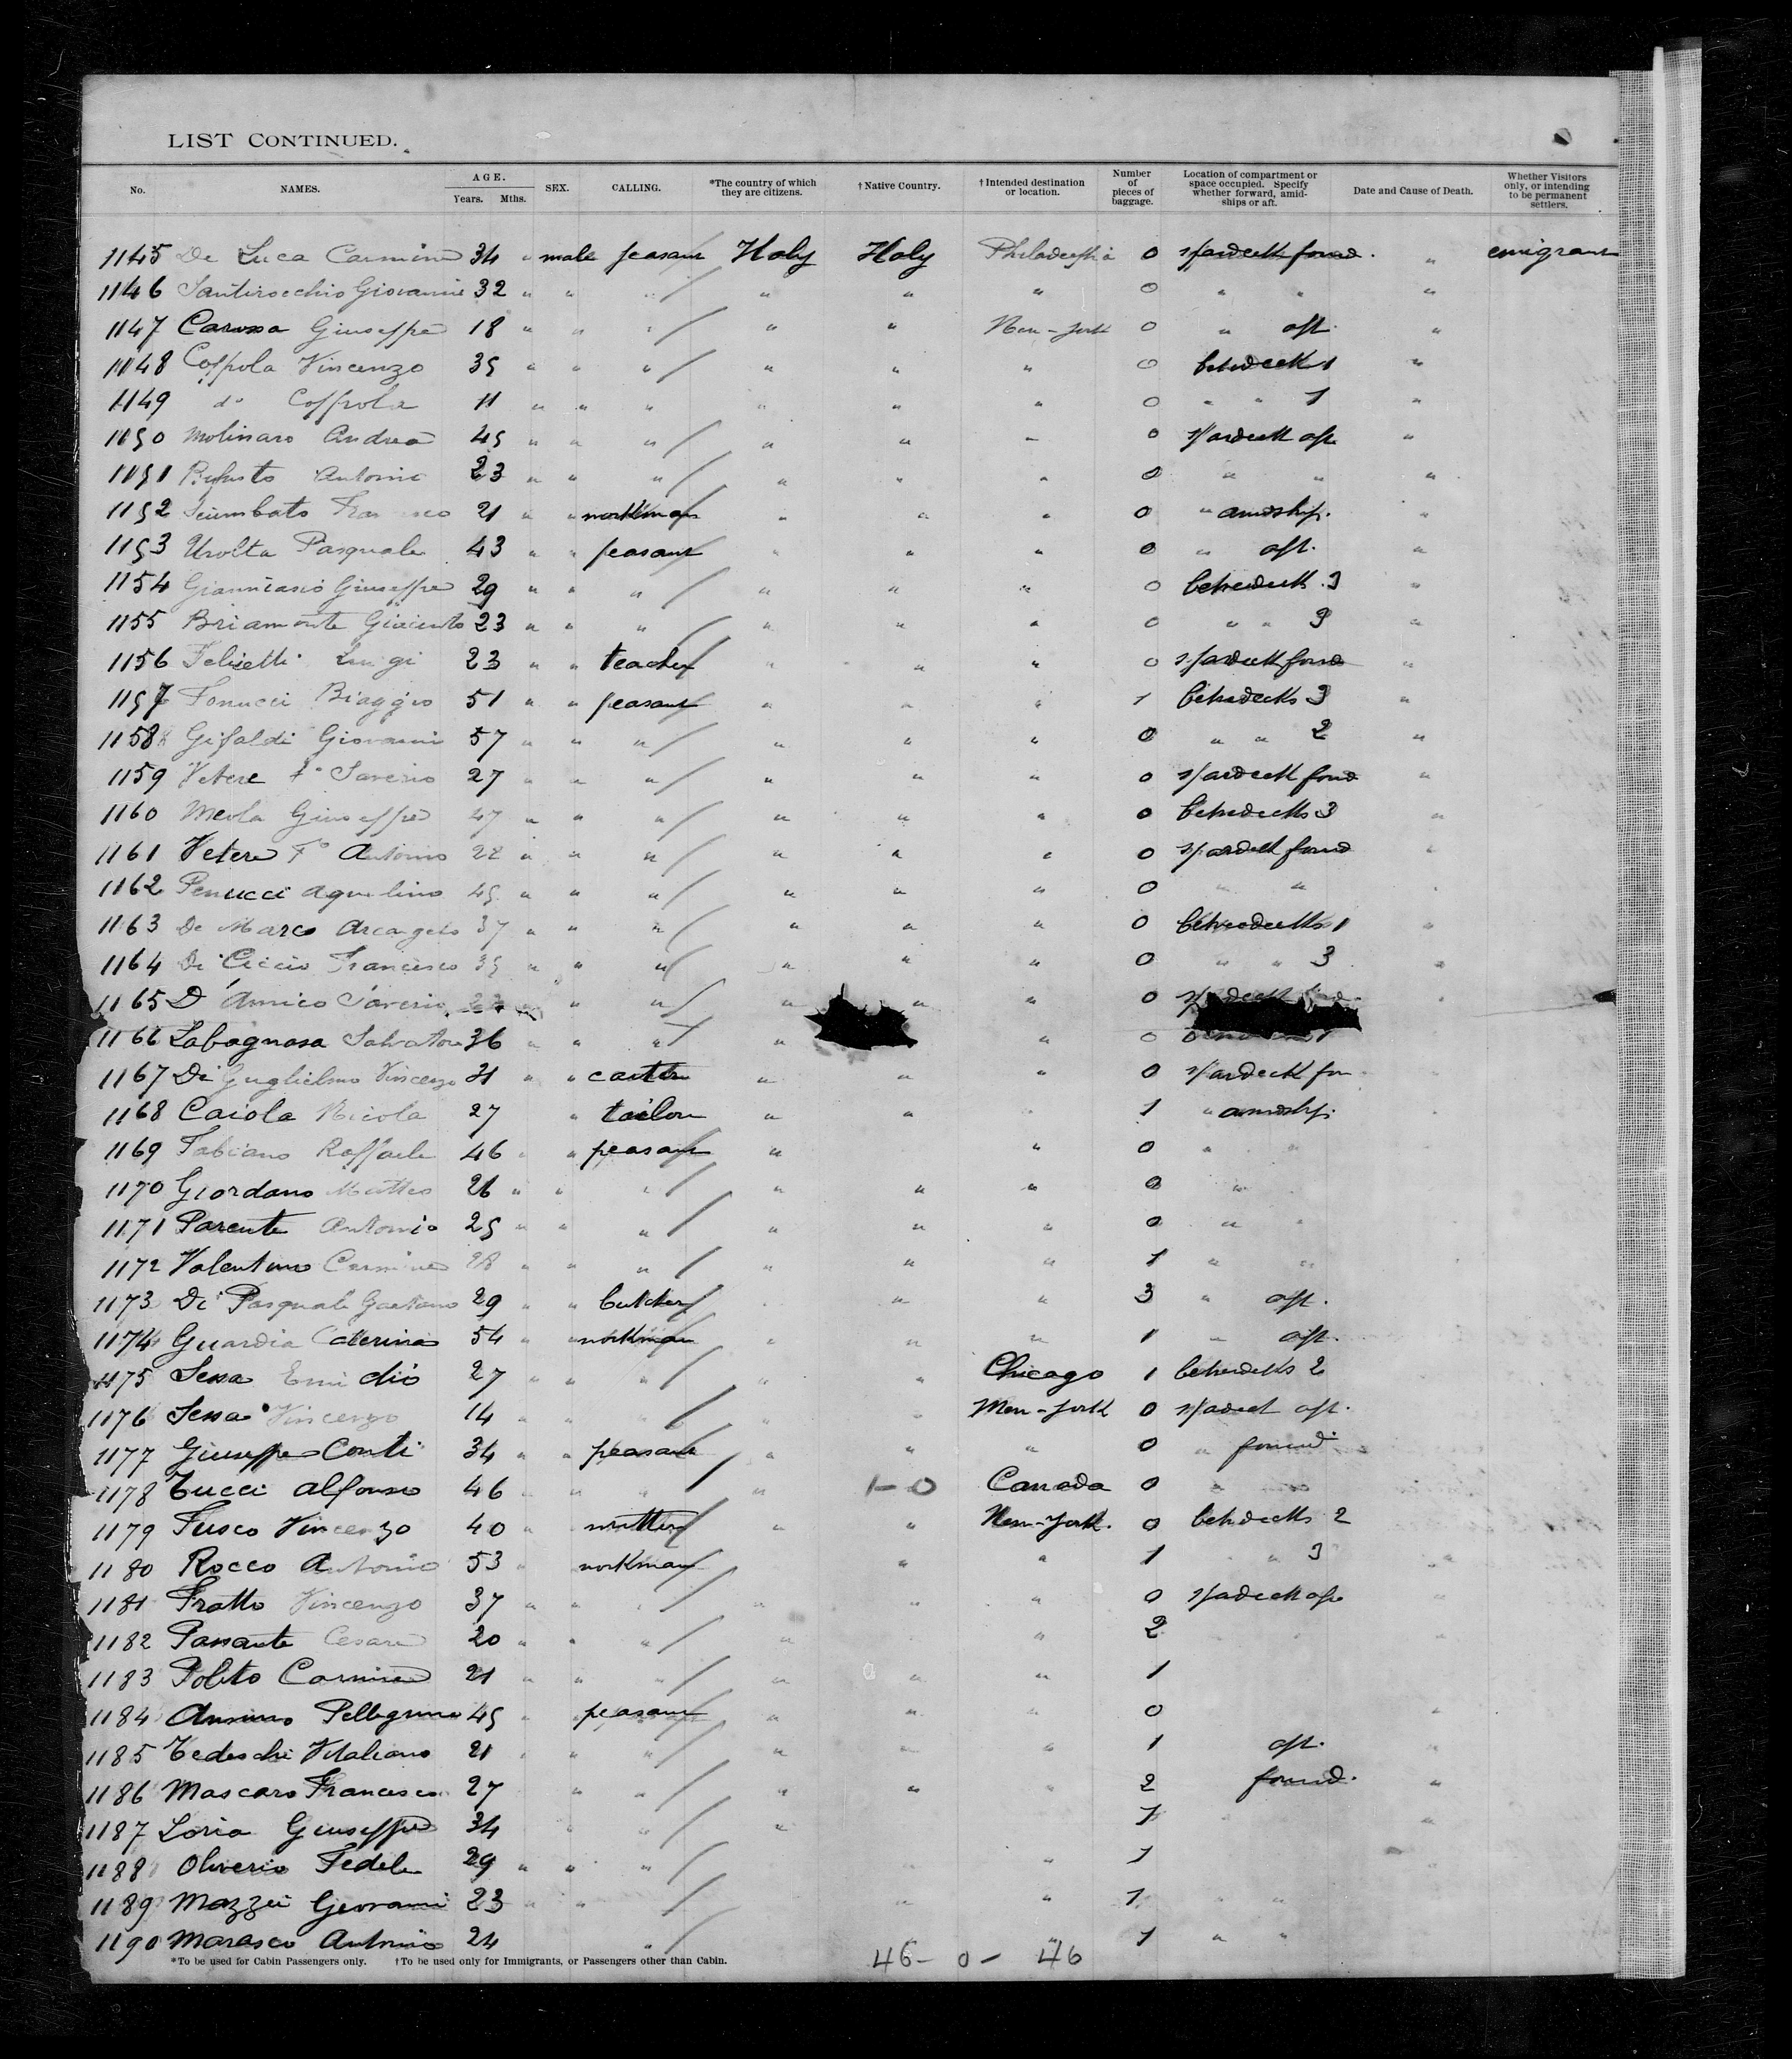 LIST CONTINUED.
No. NAMES. AGE. Years. Mths. SEX. CALLING. *The country of which they are citizens. †Native Country. †Intended destination or location. Number of pieces of baggage. Location of compartment or space occupied. Specify whether forward, amidships or aft. Date and Cause of Death. Whether Visitors only, or intending to be permanent settlers.
1145 De Luca Carmine 34 " male peasant Italy Italy Philadelphia 0 spardeck forwd. " emigrant
1146 Santirocchio Giovanni 32 " " " " " " 0 " " "
1147 Carussa Giuseppe 18 " " " " " New-York 0 " aft. "
1148 Coppola Vincenzo 35 " " " " " " 0 betwdeck 1 "
1149 do Coppola 11 " " " " " " 0 " " 1 "
1150 Molinaro Andrea 45 " " " " " " 0 spardeck aft "
1151 Antonio 23 " " " " " " 0 " " "
1152 21 " " workman " " " 0 " amidship. "
1153 Urolta Pasquale 43 " " peasant " " " 0 " aft. "
1154 Giuseppe 29 " " " " " " 0 betwdeck 3 "
1155 Briamonte Giacinto 23 " " " " " " 0 " " 3 "
1156 Felisetti Luigi 23 " " teacher " " " 0 spardeck forwd "
1157 Fonucci Biaggio 51 " " peasant " " " 1 betwdecks 3 "
1158 Gifaldi Giovanni 57 " " " " " " 0 " " 2 "
1159 Vetere fo Saverio 27 " " " " " " 0 spardeck forwd "
1160 Meola Giuseppe 47 " " " " " " 0 betwdecks 3 "
1161 Vetere Fo Antonio 22 " " " " " " 0 spardeck forwd "
1162 Penucci Aquilino 45 " " " " " " 0 " " "
1163 De Marco Arcangelo 37 " " " " " " 0 betweedecks 1 "
1164 Di Ciccio Francesco 35 " " " " " " 0 " " 3 "
1165 D'Amico Saverio " " " " " 0
1166 Labagnara Salvatore 36 " " " " " 0 1
1167 Di Guglielmo Vincenzo 31 " " carter " " " 0 spardeck for
1168 Caiola Nicola 27 " tailor " " 1 " amidship.
1169 Fabiano Raffaele 46 " " peasant " " 0 " "
1170 Giordano Matteo 26 " " " " " " 0 "
1171 Parente Antonio 25 " " " " " " 0 " "
1172 Valentino Carmine 28 " " " " " " 1 " "
1173 Di Pasquale Gaetano 29 " " butcher " " " 3 " aft.
1174 Guardia Caterina 54 " " workman " " " 1 " aft.
1175 Sessa Emidio 27 " " " " " Chicago 1 betwdecks 2
1176 Sessa Vincenzo 14 " " " " " New-York 0 spadeck aft.
1177 Giuseppe Conti 34 " " peasant " " " 0 " forwd.
1178 Tucci Alfonso 46 " " " " 1-0 Canada 0 " "
1179 Fusco Vincenzo 40 " " " New-York. 0 betwdecks 2
1180 Rocco Antonio 53 " workman " " 1 " 3
1181 Fratto Vincenzo 37 " " " " " " 0 spadeck aft
1182 Passante Cesare 20 " " " " " 2
1183 Polito Carmine 21 " " " " " " 1
1184 Pellegrino 45 " peasant " " " 0
1185 Tedeschi Vitaliano 21 " " " " " " 1 aft.
1186 Mascaro Francesco 27 " " " " " 2 forwd. "
1187 Loria Giuseppe 34 " " " 1 "
1188 Oliverio Fedele 29 " " " " 1
1189 Mazzei Giovanni 23 " " " " 1 " "
1190 Marasco Antonio 24 " " 1 " "
*To be used for Cabin Passengers only. †To be used only for Immigrants, or Passengers other than Cabin.
46 - 0 - 46